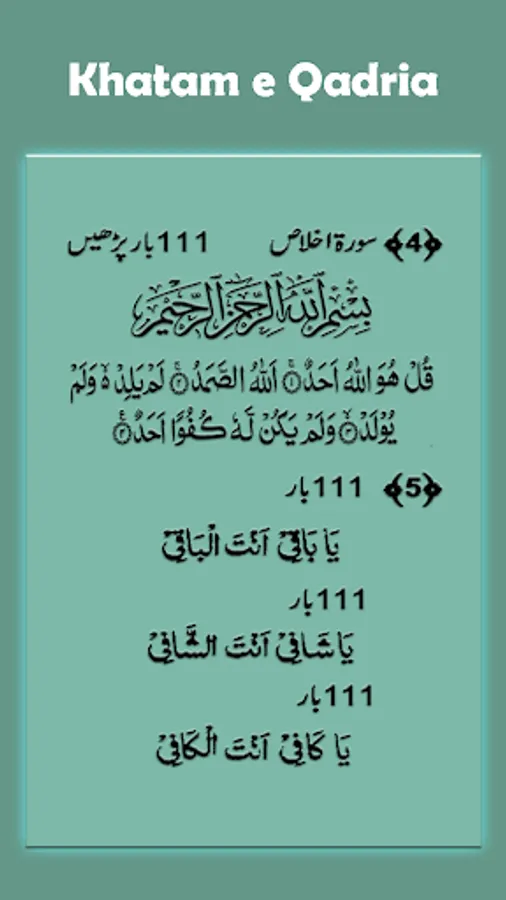 Khatam e Qadria
﴿4﴾ سورۃ اخلاص 111 بار پڑھیں
بِسْمِ اللّٰهِ الرَّحْمٰنِ الرَّحِيْمِ
قُلْ هُوَ اللّٰهُ اَحَدٌ۝۱ اَللّٰهُ الصَّمَدُ۝۲ لَمْ يَلِدْ ۙ۬ وَلَمْ
يُوْلَدْ۝۳ وَلَمْ يَكُنْ لَّهٗ كُفُوًا اَحَدٌ۝۴
﴿5﴾ 111 بار
يَا بَاقِيْ اَنْتَ الْبَاقِيْ
111 بار
يَا شَافِيْ اَنْتَ الشَّافِيْ
111 بار
يَا كَافِيْ اَنْتَ الْكَافِيْ